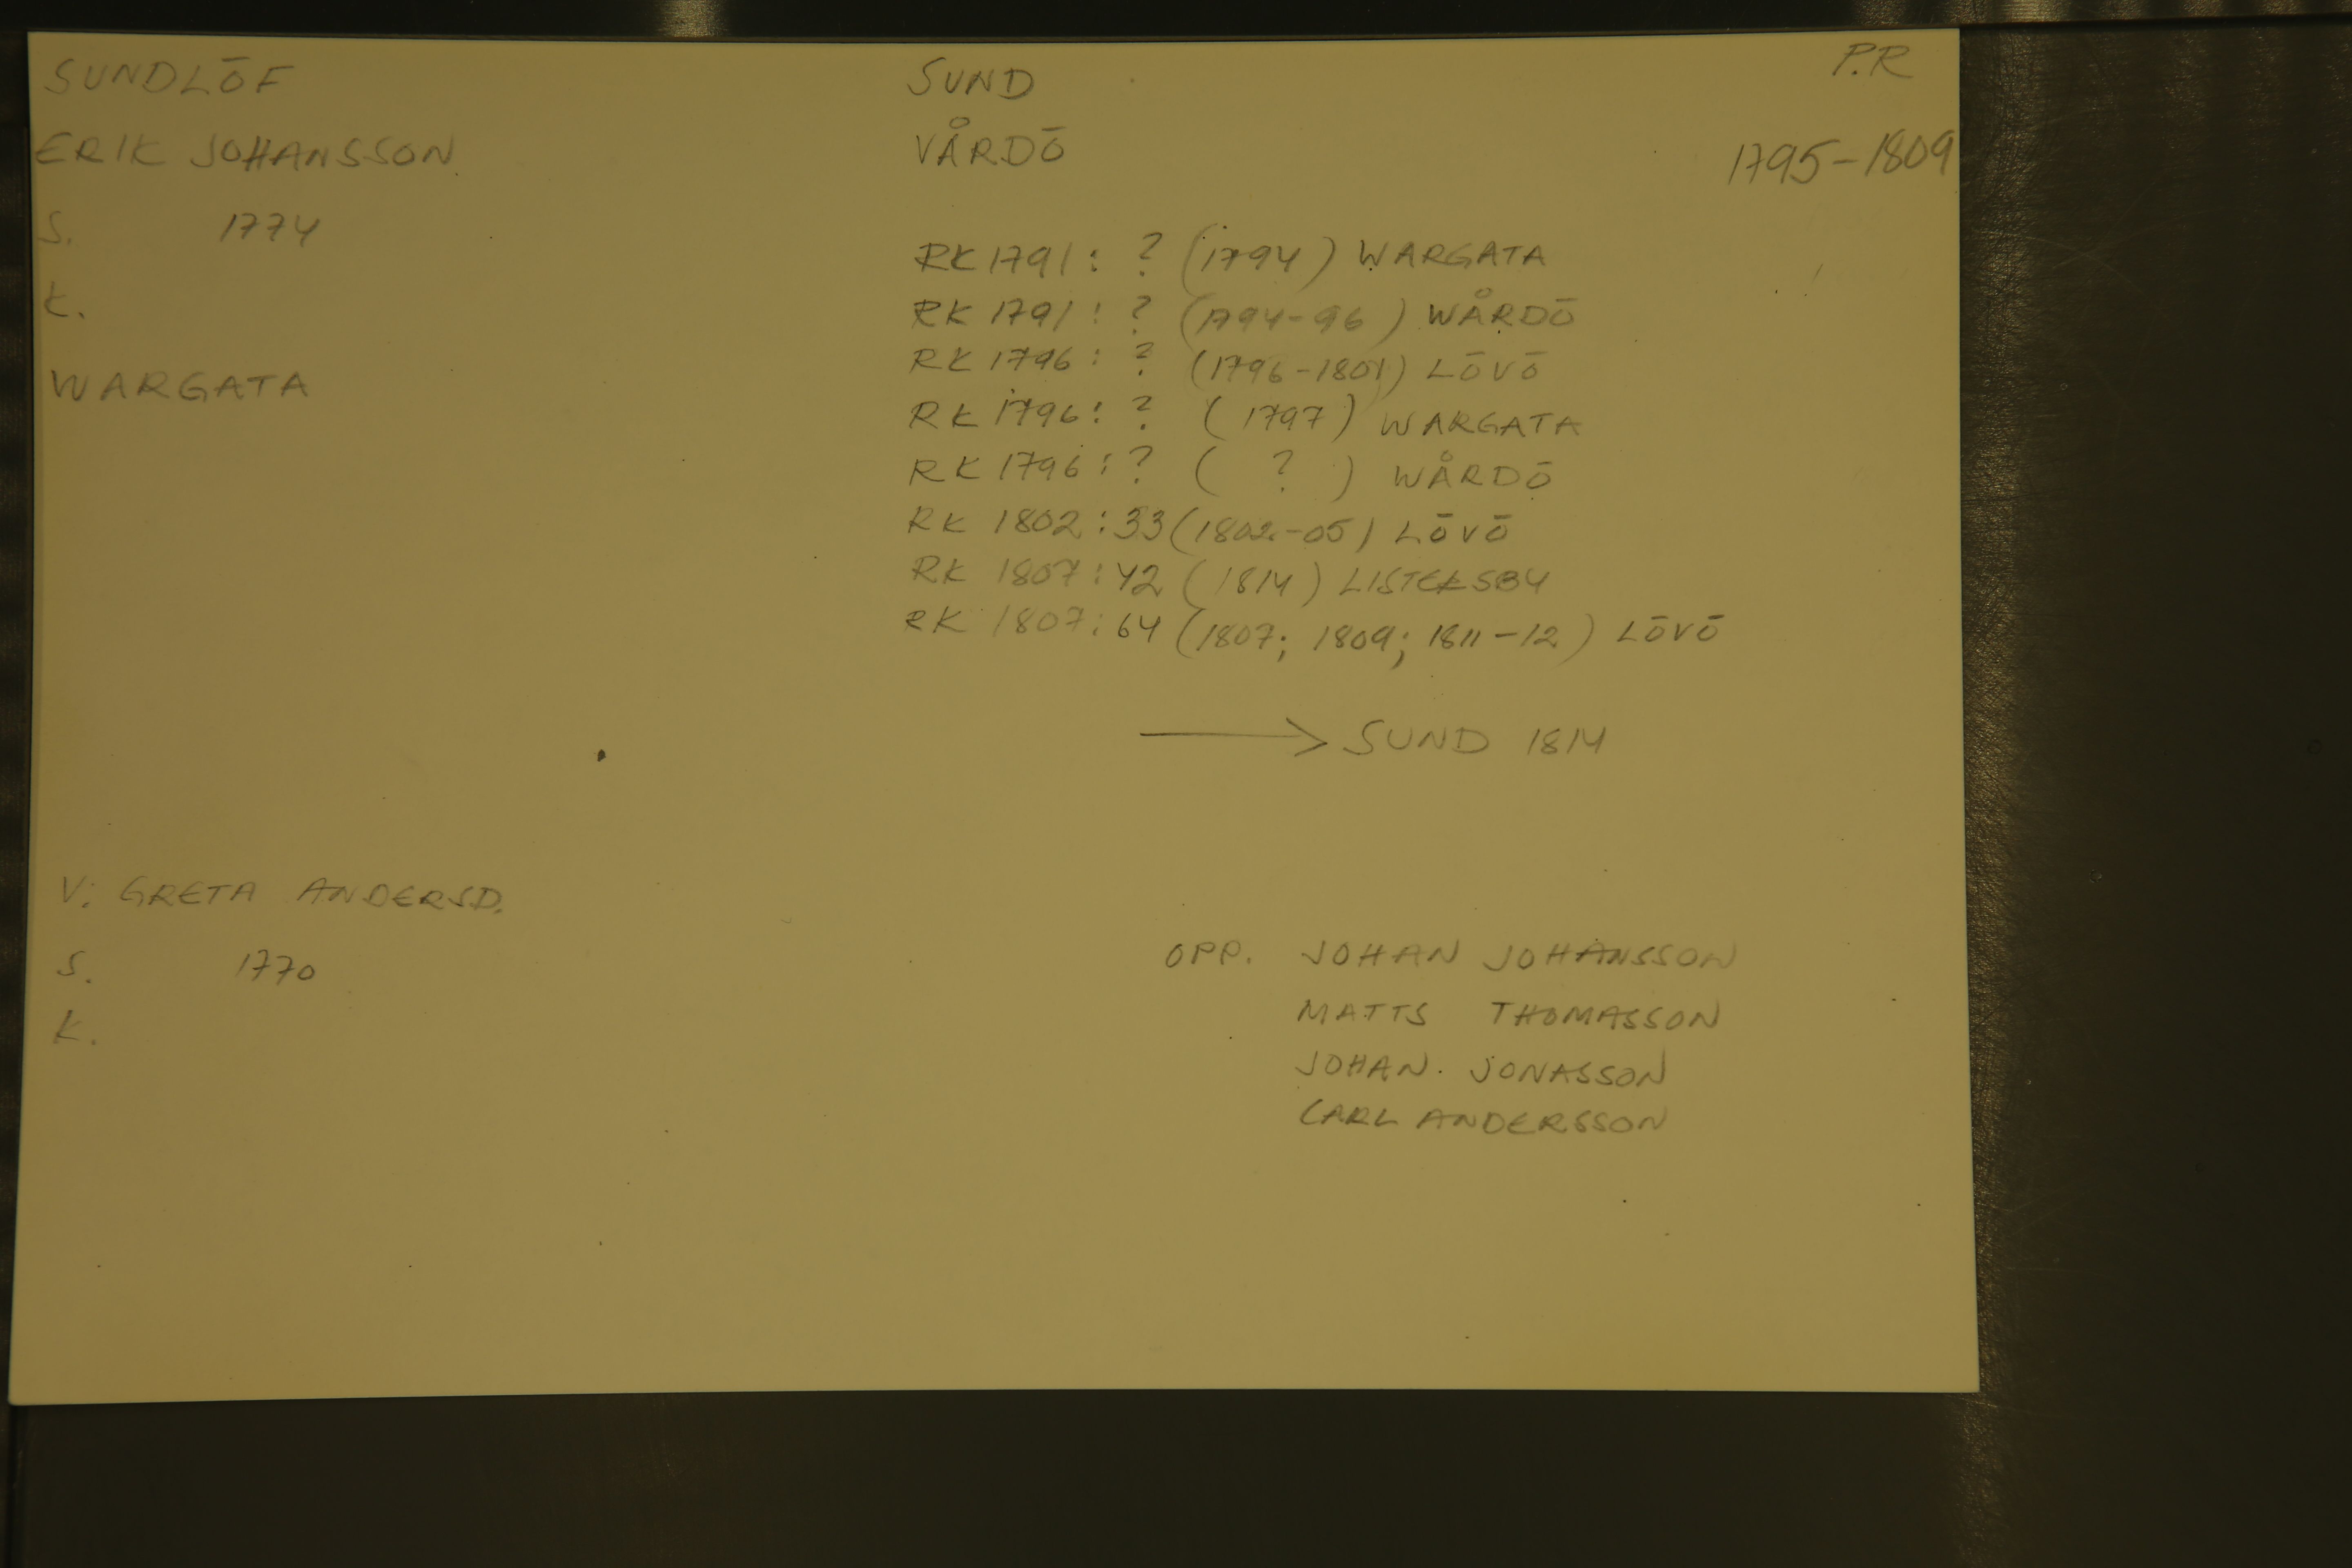 SUNDLÖF
ERIK JOHANSSON
S. 1774
K.
WARGATA
V: GRETA ANDERSD.
S. 1770
K.
SUND
VÅRDÖ
P.R
1795-1809
RK 1791: ? (1794) WARGATA
RK 1791: ? (1794-96) WÅRDÖ
RK 1796: ? (1796-1801) LÖVÖ
RK 1796: ? (1797) WARGATA
RK 1796: ? ( ? ) WÅRDÖ
RK 1802: 33 (1802-05) LÖVÖ
RK 1807: 42 (1814) LISTERSBY
RK 1807: 64 (1807; 1809; 1811-12) LÖVÖ
→ SUND 1814
OPP. JOHAN JOHANSSON
MATTS THOMASSON
JOHAN JONASSON
CARL ANDERSSON